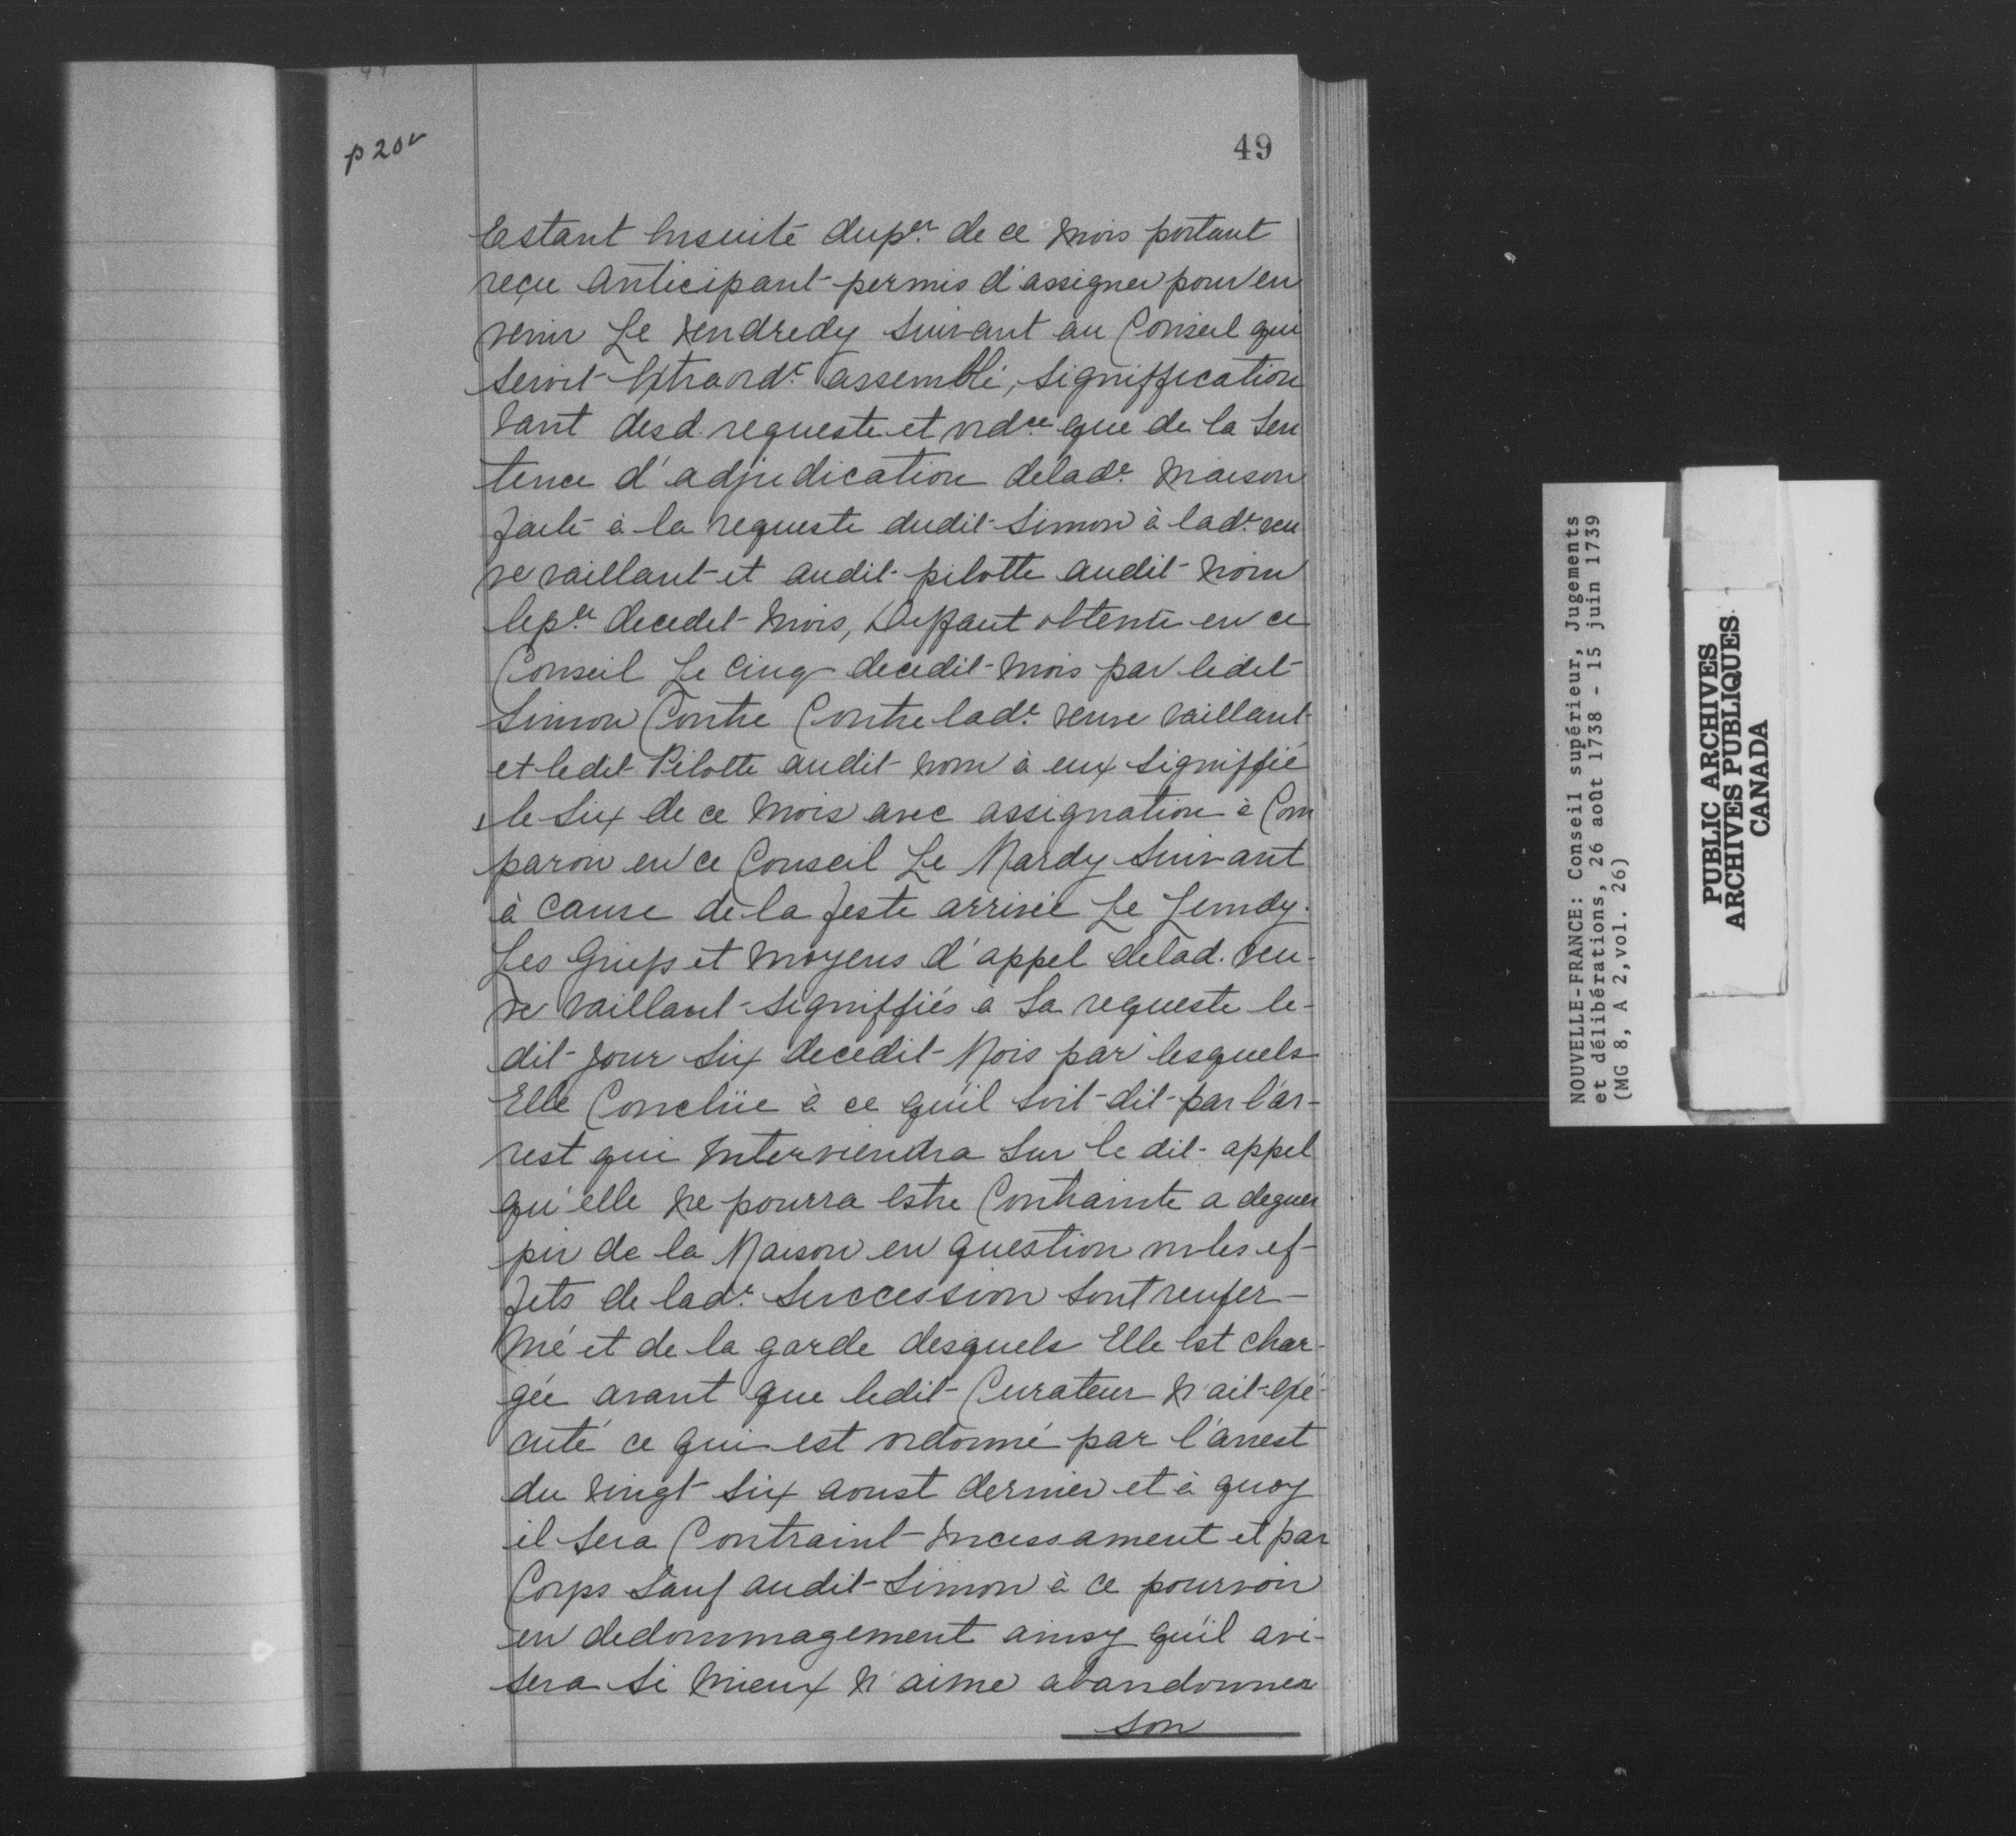 p 20v
49
Estant Ensuite duper. de ce Mois portant
reçu Anticipant permis d'assigner pour en
venir Le Vendredy Suivant au Conseil qui
seroit Extraordre. assemblé, Signiffication
tant desd. requeste et ordce que de la Sen
tence d'adjudication delade. Maison
faite à la requeste dudit Simon à lade. veu
ve vaillant et audit pilotte audit Nom
leper. decedit Mois, Deffaut obtenu en ce
Conseil Le Cinq decedit Mois par ledit
Simon Contre Contre lade. veuve vaillant
et ledit Pilotte audit Nom à eux Signiffié
le Six de ce Mois avec assignation à Com
paroir en ce Conseil Le Mardy Suivant
à cause de la feste arrivée Le Lundy.
Les Griefs et Moyens d'appel delad. veu-
ve Vaillant Signiffiés à Sa requeste le-
dit Jour Six decedit Mois par lesquels
Elle Conclüe à ce qu'il soit dit par l'ar-
rest qui Interviendra Sur le dit appel
qu'elle Ne pourra Estre Contrainte a deguer
pir de la Maison en question où les ef-
fets de lade. Succession sont renfer-
Mé et de la garde desquels Elle Est char-
gée avant que ledit Curateur N'ait exé-
cuté ce qui est ordonné par l'arrest
du Vingt Six aoust dernier et à quoy
il Sera Contraint Incessament et par
Corps Sauf audit Simon à ce pourvoir
en dedommagement ainsy qu'il avi-
sera Si Mieux N'aime abandonner
Son
NOUVELLE-FRANCE: Conseil supérieur, Jugements
et délibérations, 26 août 1738 - 15 juin 1739
(MG 8, A 2,vol. 26)
PUBLIC ARCHIVES
ARCHIVES PUBLIQUES
CANADA